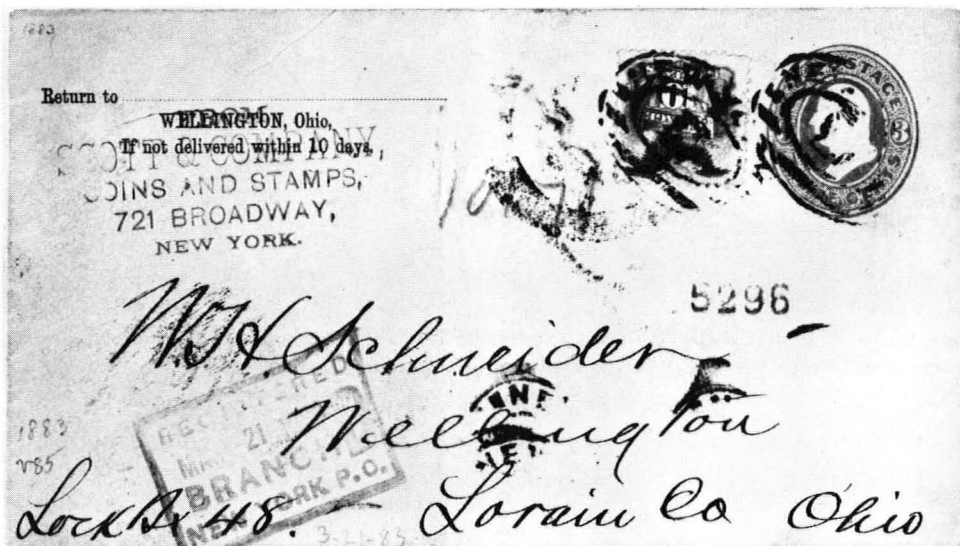 1883
Return to
WELLINGTON, Ohio,
If not delivered within 10 days,
SCOTT & COMPANY
COINS AND STAMPS,
721 BROADWAY,
NEW YORK.
10
POSTAGE
3
CENTS
5296
W. H. Schneider
Wellington
Lock Bx 48.
Lorain Co Ohio
REGISTERED
21
BRANCH
NEW YORK P.O.
1883
3-21-83